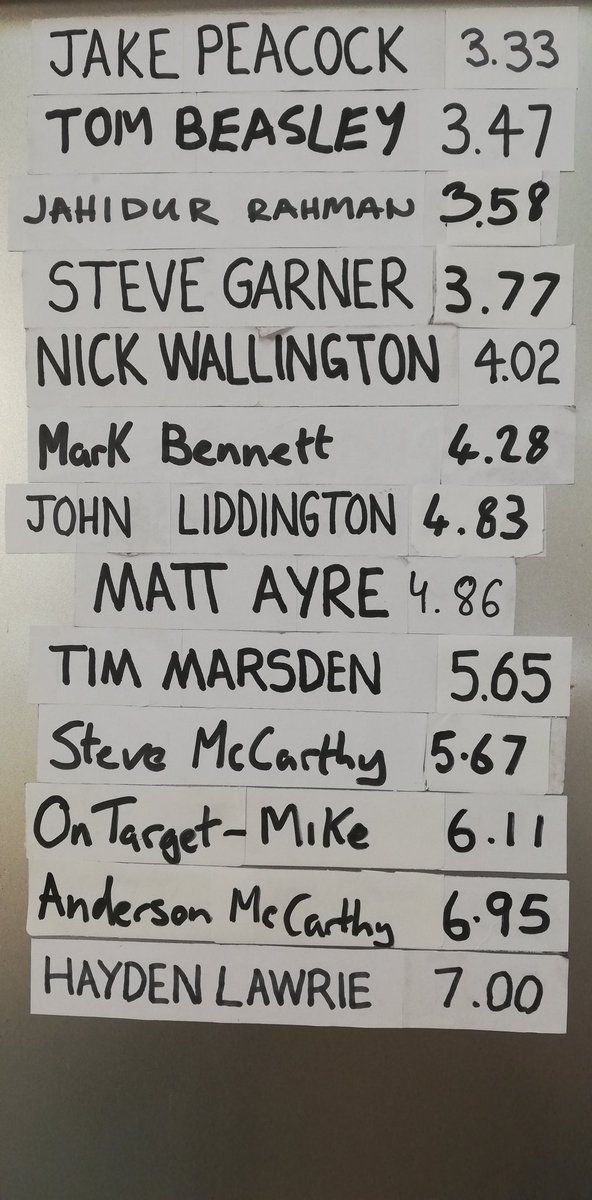 JAKE PEACOCK 3.33
TOM BEASLEY 3.47
JAHIDUR RAHMAN 3.58
STEVE GARNER 3.77
NICK WALLINGTON 4.02
Mark Bennett 4.28
JOHN LIDDINGTON 4.83
MATT AYRE 4.86
TIM MARSDEN 5.65
Steve McCarthy 5.67
On Target - Mike 6.11
Anderson McCarthy 6.95
HAYDEN LAWRIE 7.00